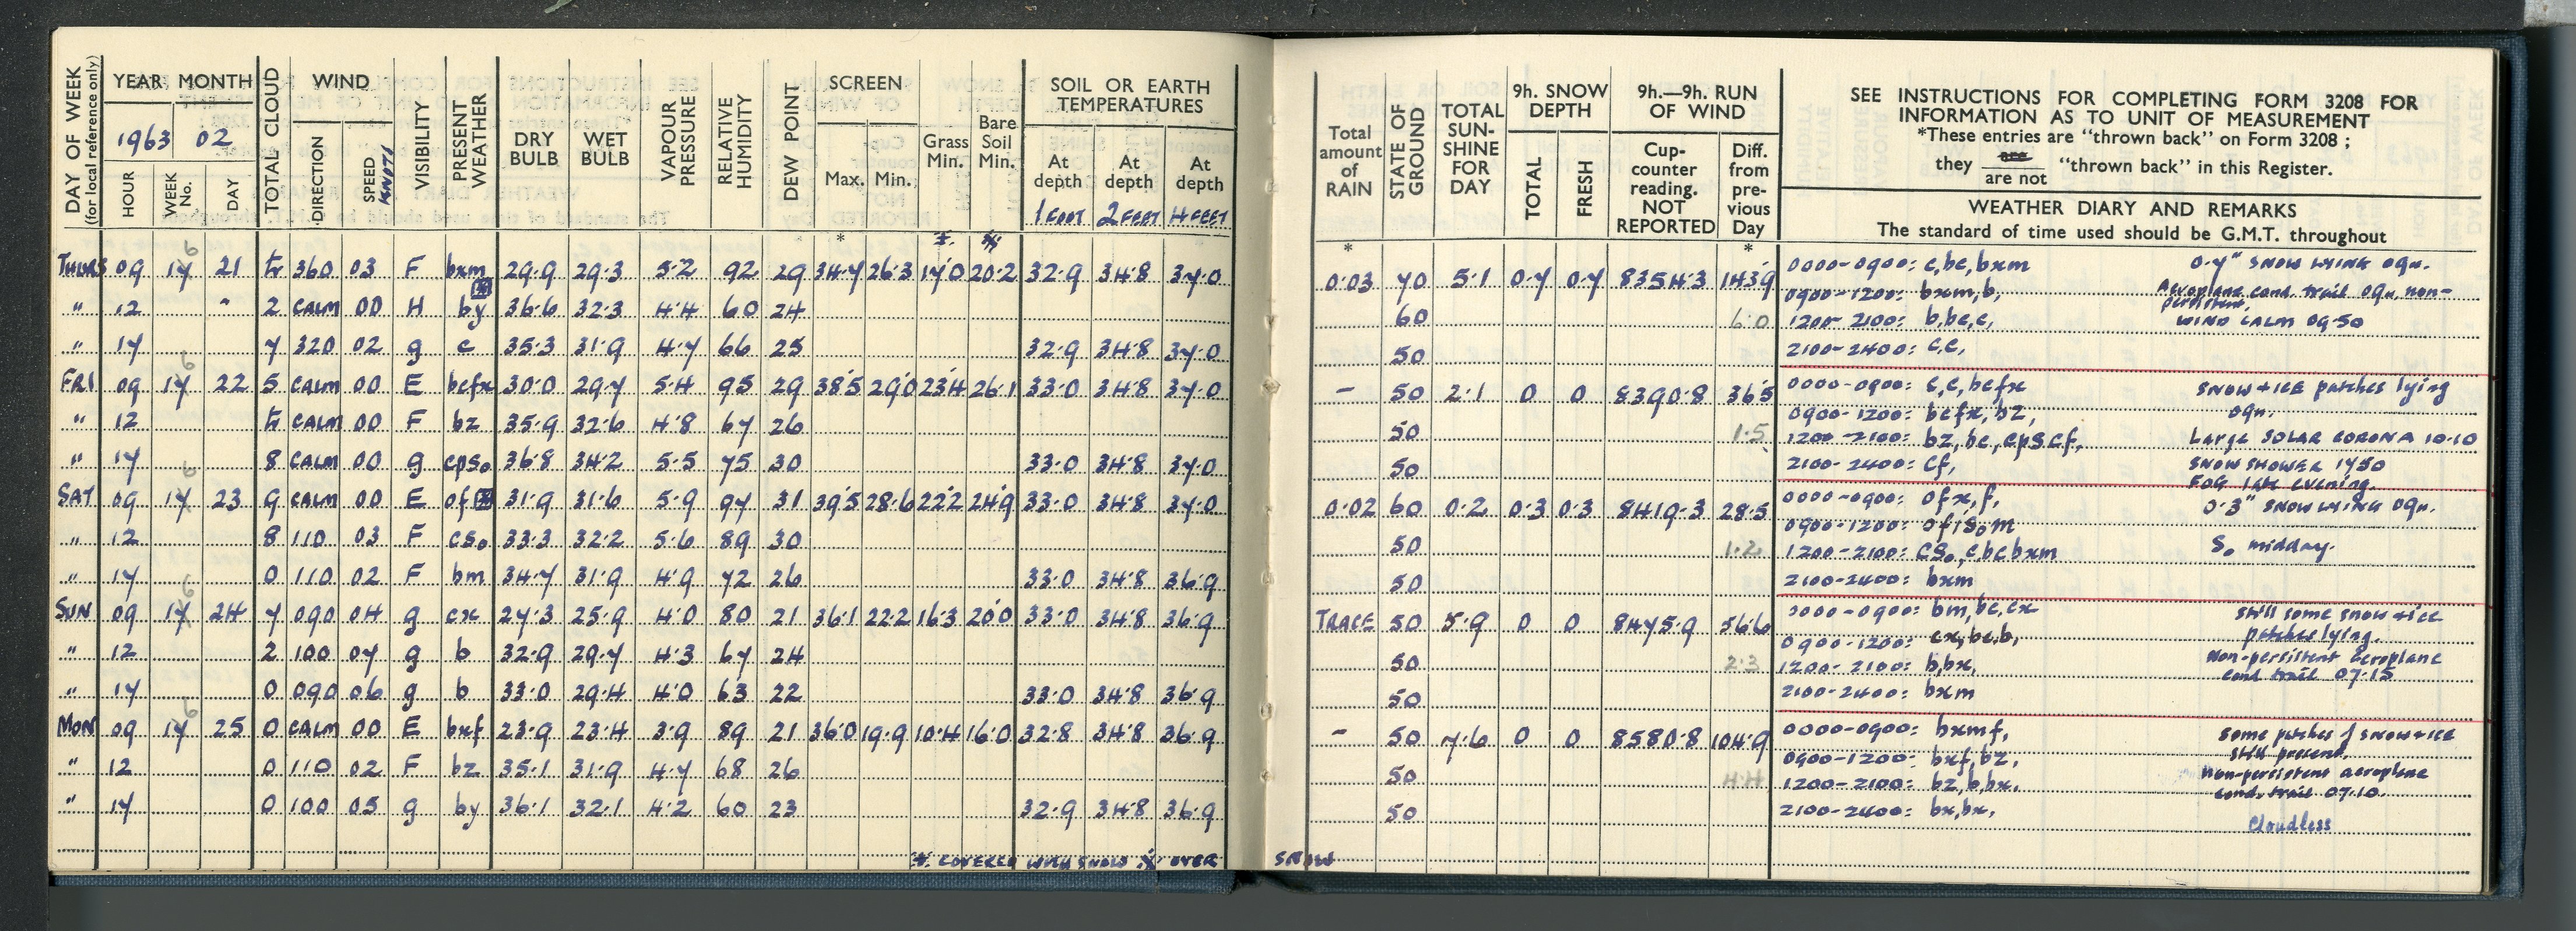 DAY OF WEEK (for local reference only)
YEAR MONTH
1963 02
HOUR WEEK No. DAY
TOTAL CLOUD
WIND
DIRECTION SPEED KNOTS
VISIBILITY
PRESENT WEATHER
DRY BULB WET BULB
VAPOUR PRESSURE
RELATIVE HUMIDITY
DEW POINT
SCREEN
Max. Min. Grass Min. Bare Soil Min.
SOIL OR EARTH TEMPERATURES
At depth At depth At depth
1 FOOT 2 FEET 4 FEET
THURS 09 17 6 21 tr 360 03 F bxm 29.9 29.3 5.2 92 29 34.7 26.3 17.0 20.2 32.9 34.8 37.0
" 12 " 2 CALM 00 H by 36.6 32.3 4.4 60 24
" 17 7 320 02 g c 35.3 31.9 4.7 66 25 32.9 34.8 37.0
FRI 09 17 6 22 5 CALM 00 E bcfx 30.0 29.7 5.4 95 29 38.5 29.0 23.4 26.1 33.0 34.8 37.0
" 12 tr CALM 00 F bz 35.9 32.6 4.8 67 26
" 17 8 CALM 00 g cpso 36.8 34.2 5.5 75 30 33.0 34.8 37.0
SAT 09 17 6 23 9 CALM 00 E of 31.9 31.6 5.9 97 31 39.5 28.6 22.2 24.9 33.0 34.8 37.0
" 12 8 110 03 F cso 33.3 32.2 5.6 89 30
" 17 0 110 02 F bm 34.7 31.9 4.9 72 26 33.0 34.8 36.9
SUN 09 17 6 24 7 090 04 g cx 27.3 25.9 4.0 80 21 36.1 22.2 16.3 20.0 33.0 34.8 36.9
" 12 2 100 07 g b 32.9 29.7 4.3 67 24
" 17 0 090 06 g b 33.0 29.4 4.0 63 22 33.0 34.8 36.9
MON 09 17 6 25 0 CALM 00 E bxf 23.9 23.4 3.9 89 21 36.0 19.9 10.4 16.0 32.8 34.8 36.9
" 12 0 110 02 F bz 35.1 31.9 4.7 68 26
" 17 0 100 05 g by 36.1 32.1 4.2 60 23 32.9 34.8 36.9
COVERED WITH SNOW OVER SNOW
Total amount of RAIN
STATE OF GROUND
TOTAL SUN-SHINE FOR DAY
9h. SNOW DEPTH
TOTAL FRESH
9h.—9h. RUN OF WIND
Cup-counter reading. NOT REPORTED
Diff. from pre-vious Day
SEE INSTRUCTIONS FOR COMPLETING FORM 3208 FOR
INFORMATION AS TO UNIT OF MEASUREMENT
*These entries are "thrown back" on Form 3208 ;
they are / are not "thrown back" in this Register.
WEATHER DIARY AND REMARKS
The standard of time used should be G.M.T. throughout
0.03 70 5.1 0.7 0.7 8354.3 143.9 0000-0900: c,bc,bxm 0.7" SNOW LYING 09h.
0900-1200: bxm,b, Aeroplane cond. trail 09h. non-persistent.
60 6.0 1200-2100: b,bc,c, WIND CALM 09.50
50 2100-2400: c,c,
- 50 2.1 0 0 8390.8 36.5 0000-0900: c,c,bcfx SNOW + ICE patches lying
0900-1200: bcfx,bz, 09h.
50 1.5 1200-2100: bz,bc,cps,cf, Large SOLAR CORONA 10.10
50 2100-2400: cf, SNOW SHOWER 1750
FOG late evening.
0.02 60 0.2 0.3 0.3 8419.3 28.5 0000-0900: ofx,f, 0.3" SNOW LYING 09h.
0900-1200: ofsom
50 1.2 1200-2100: cso,c,bc,bxm So midday.
50 2100-2400: bxm
TRACE 50 5.9 0 0 8475.9 56.6 0000-0900: bm,bc,cx Still some snow + ice
0900-1200: cx,bc,b, patches lying.
50 2.3 1200-2100: b,bx, Non-persistent aeroplane
cond. trail 07.15
50 2100-2400: bxm
- 50 7.6 0 0 8580.8 104.9 0000-0900: bxmf, Some patches of snow + ice
still present.
0900-1200: bxf,bz,
50 4.4 1200-2100: bz,b,bx, Non-persistent aeroplane
cond. trail 07.10.
50 2100-2400: bx,bx, Cloudless